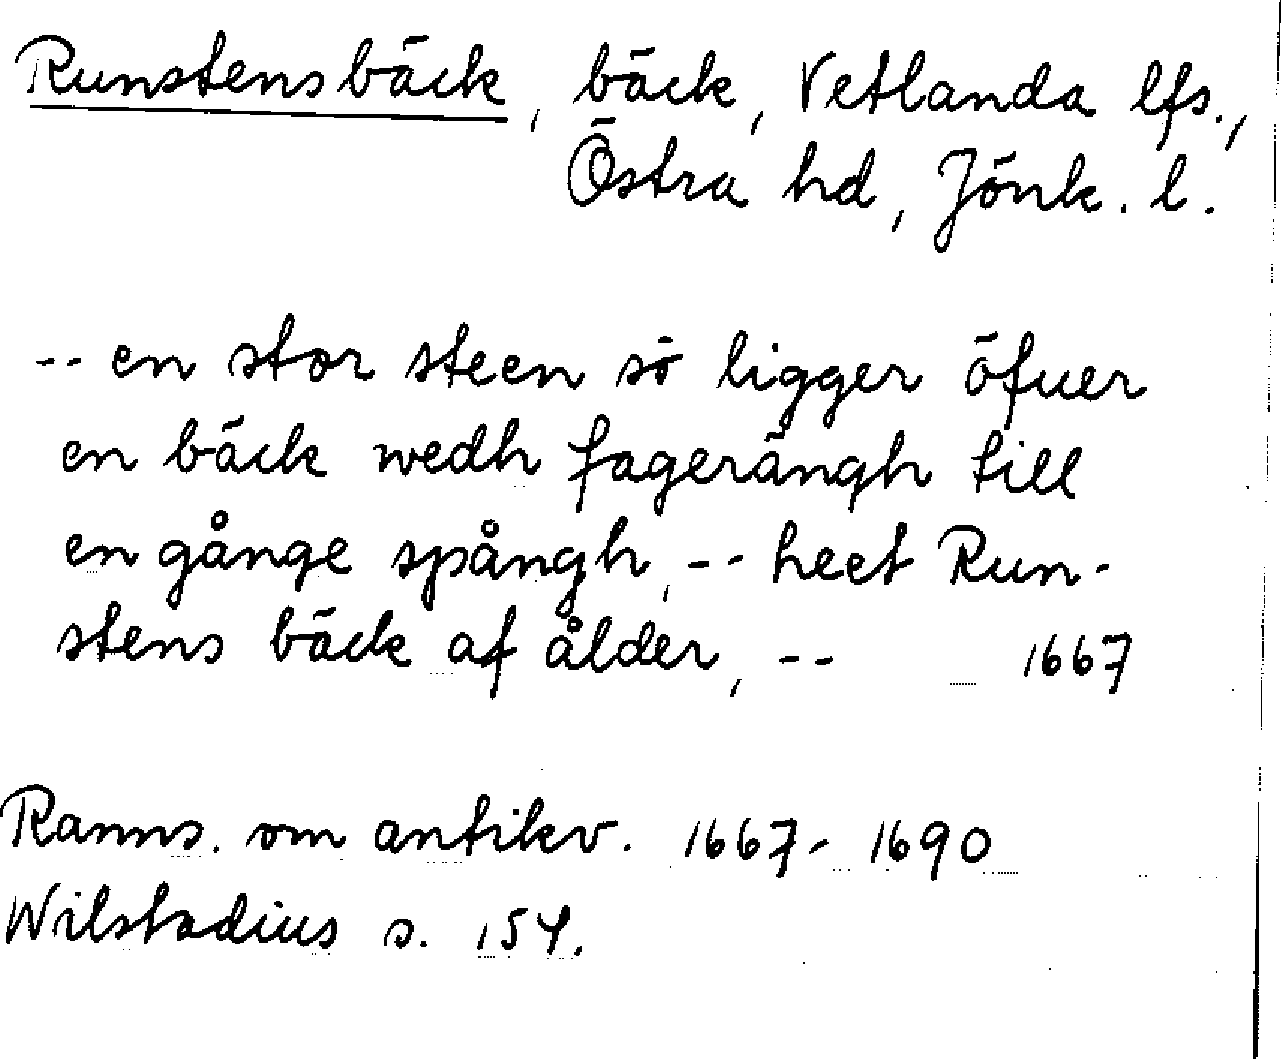 Runstensbäck, bäck, Vetlanda lfs.,
Östra hd, Jönk. l.
-- en stor steen sō ligger öfuer
en bäck wedh fagerängh till
en gånge spångh, -- heet Run-
stens bäck af ålder, -- 1667
Ranns. om antikv. 1667-1690
Wilstadius s. 154.